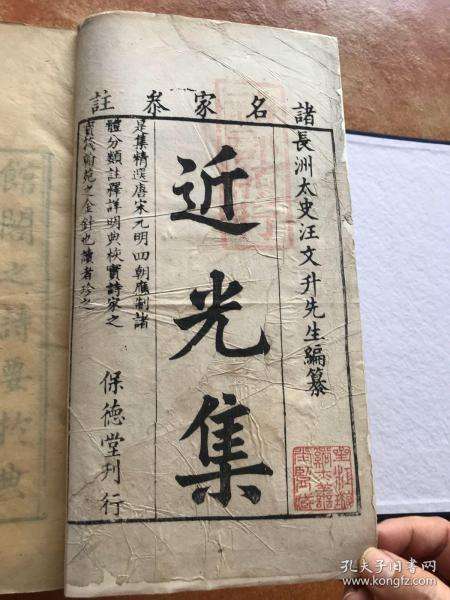 諸名家叅註
長洲太史汪文升先生編纂
近光集
是集精選唐宋元明四朝應制諸
體分類註釋詳明典核實詩家之
金針也讀者珍之
保德堂刊行
館閣之詩要於典
孔夫子旧书网
www.kongfz.com